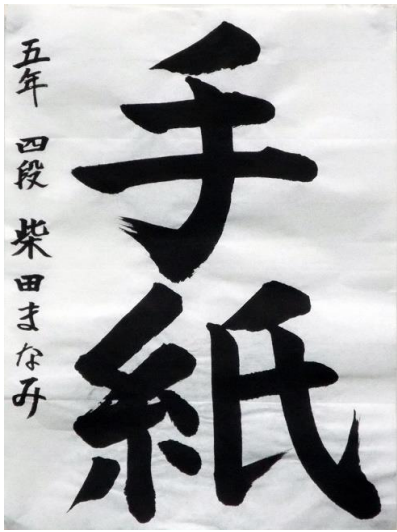 手紙
五年 四段 柴田まなみ